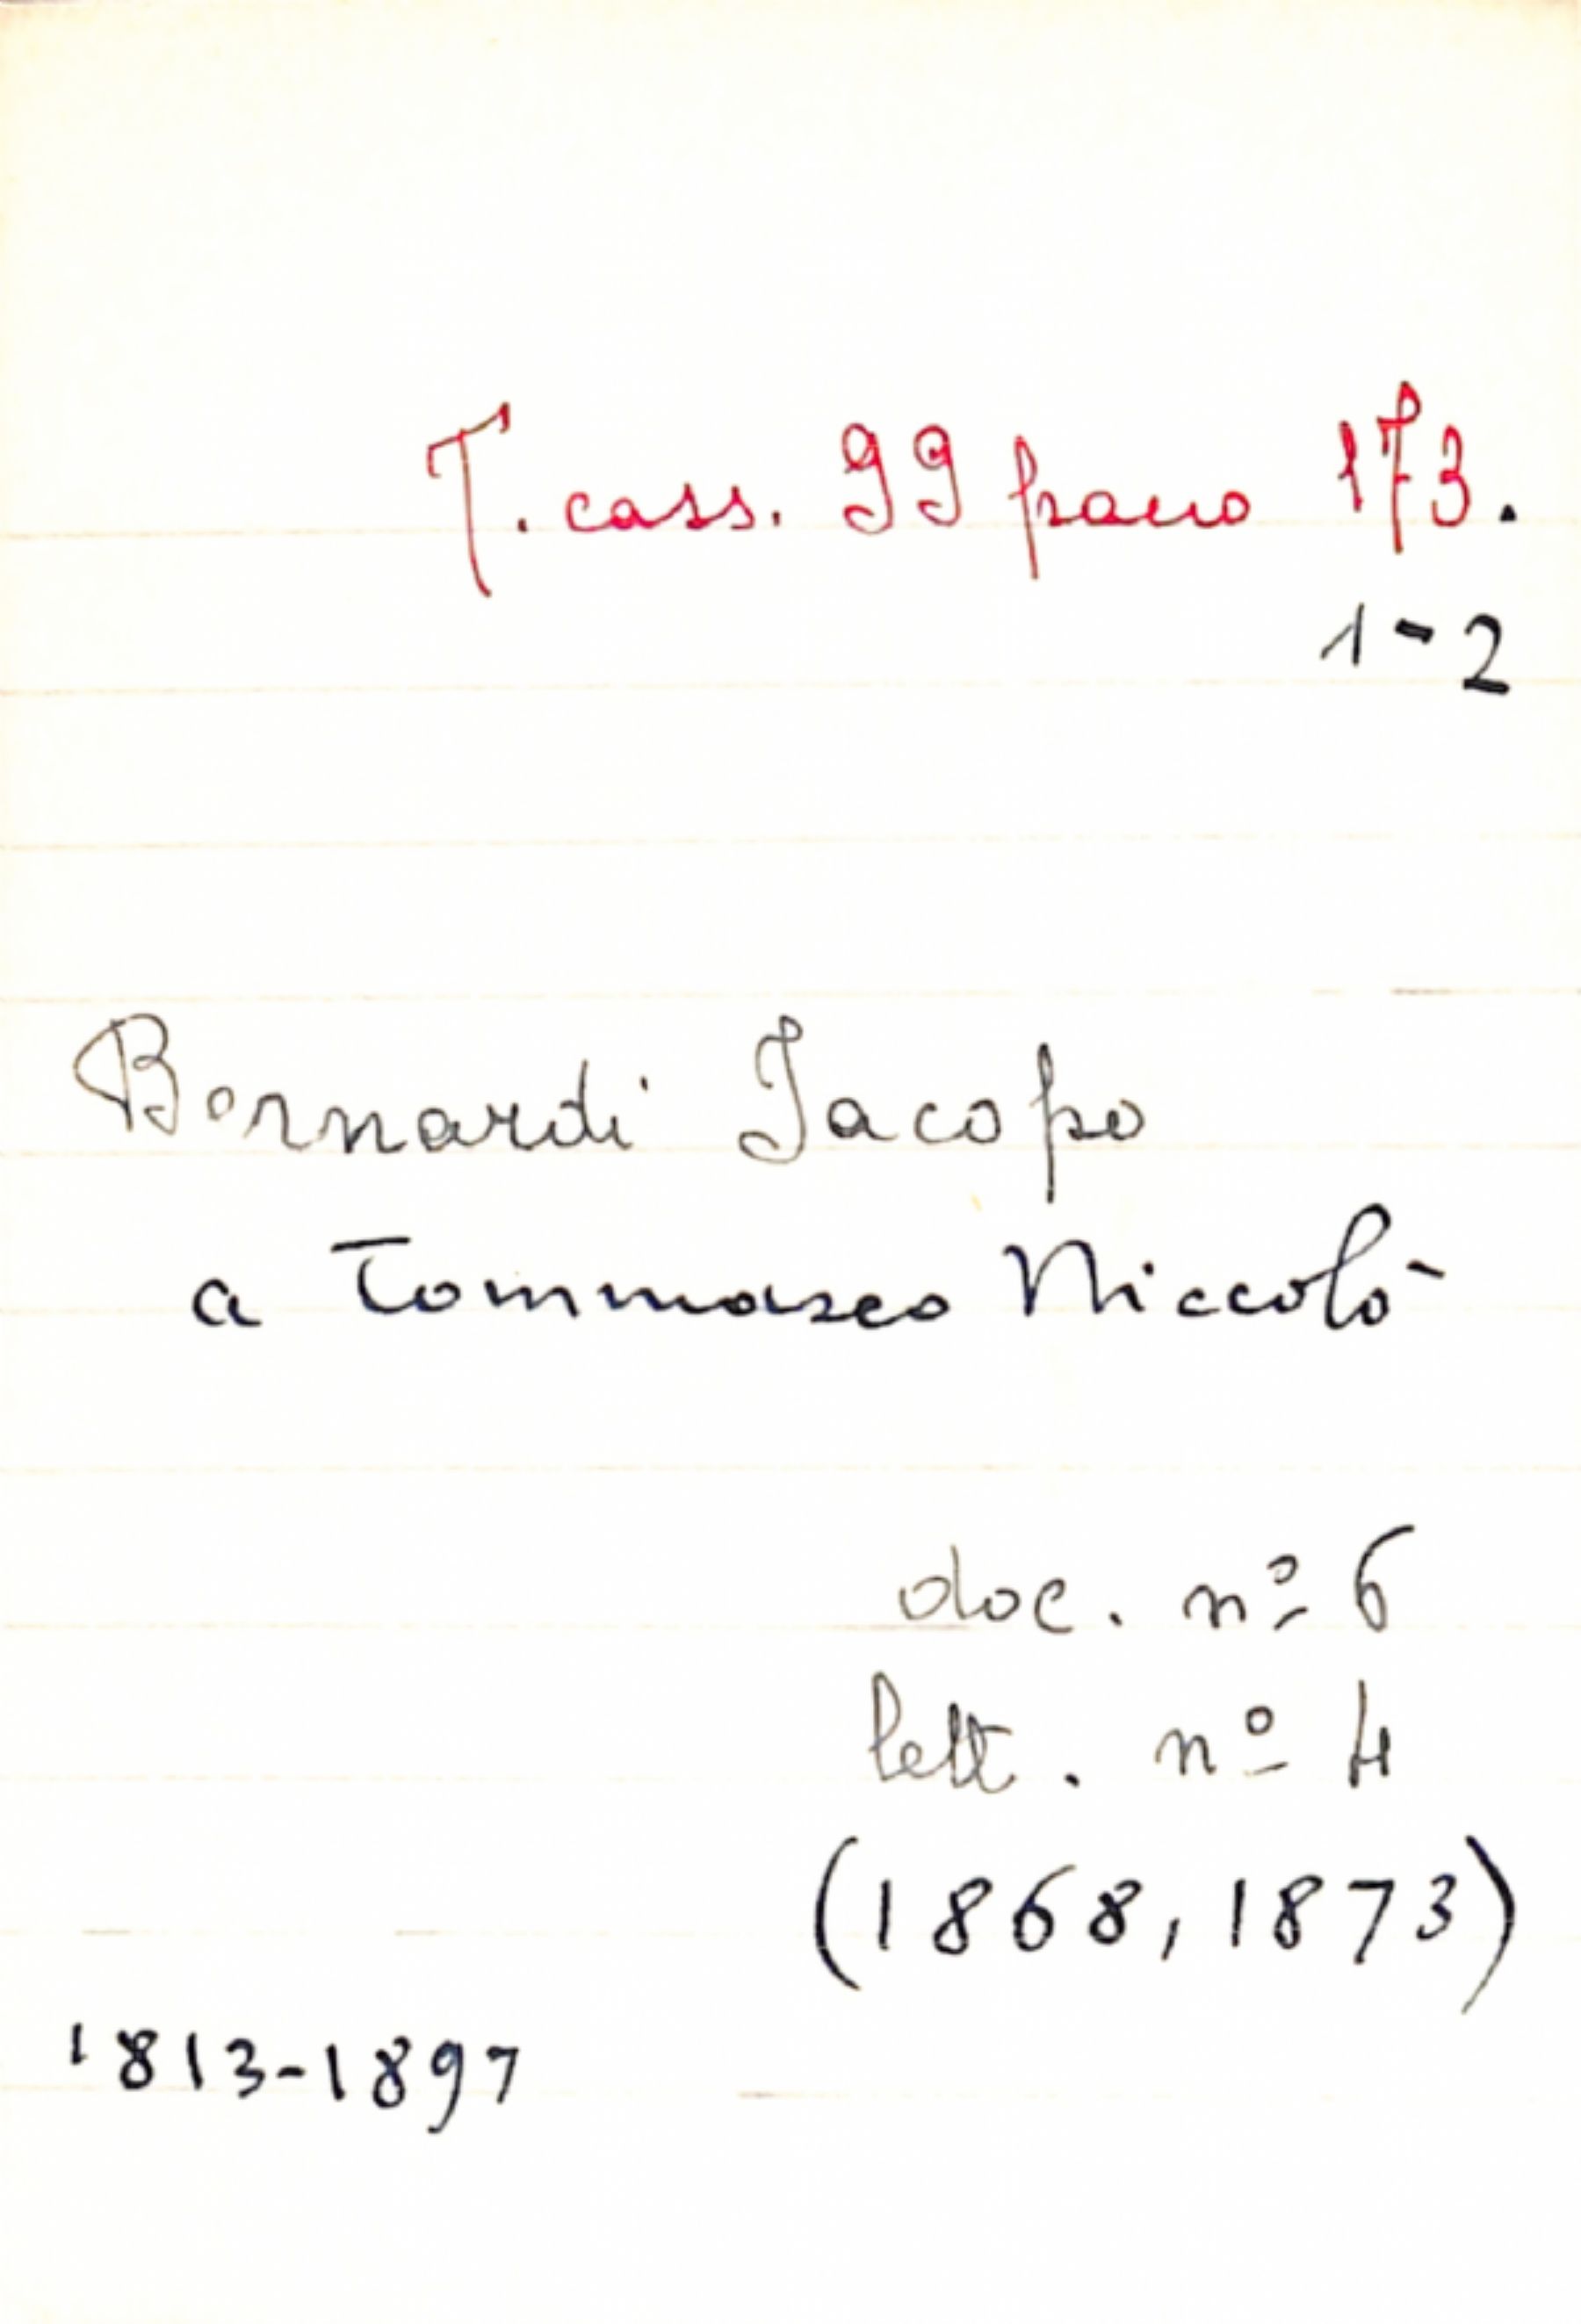 T. cass. 99 panno 173.
1-2
Bernardi Jacopo
a Tommaseo Niccolò
doc. nº 6
lett. nº 4
(1868, 1873)
1813-1897